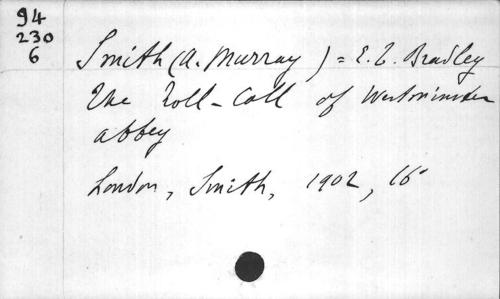 94
230
6
Smith (A. Murray) = E. T. Bradley
The Roll-Call of Westminster
abbey
London, Smith, 1902, 16°